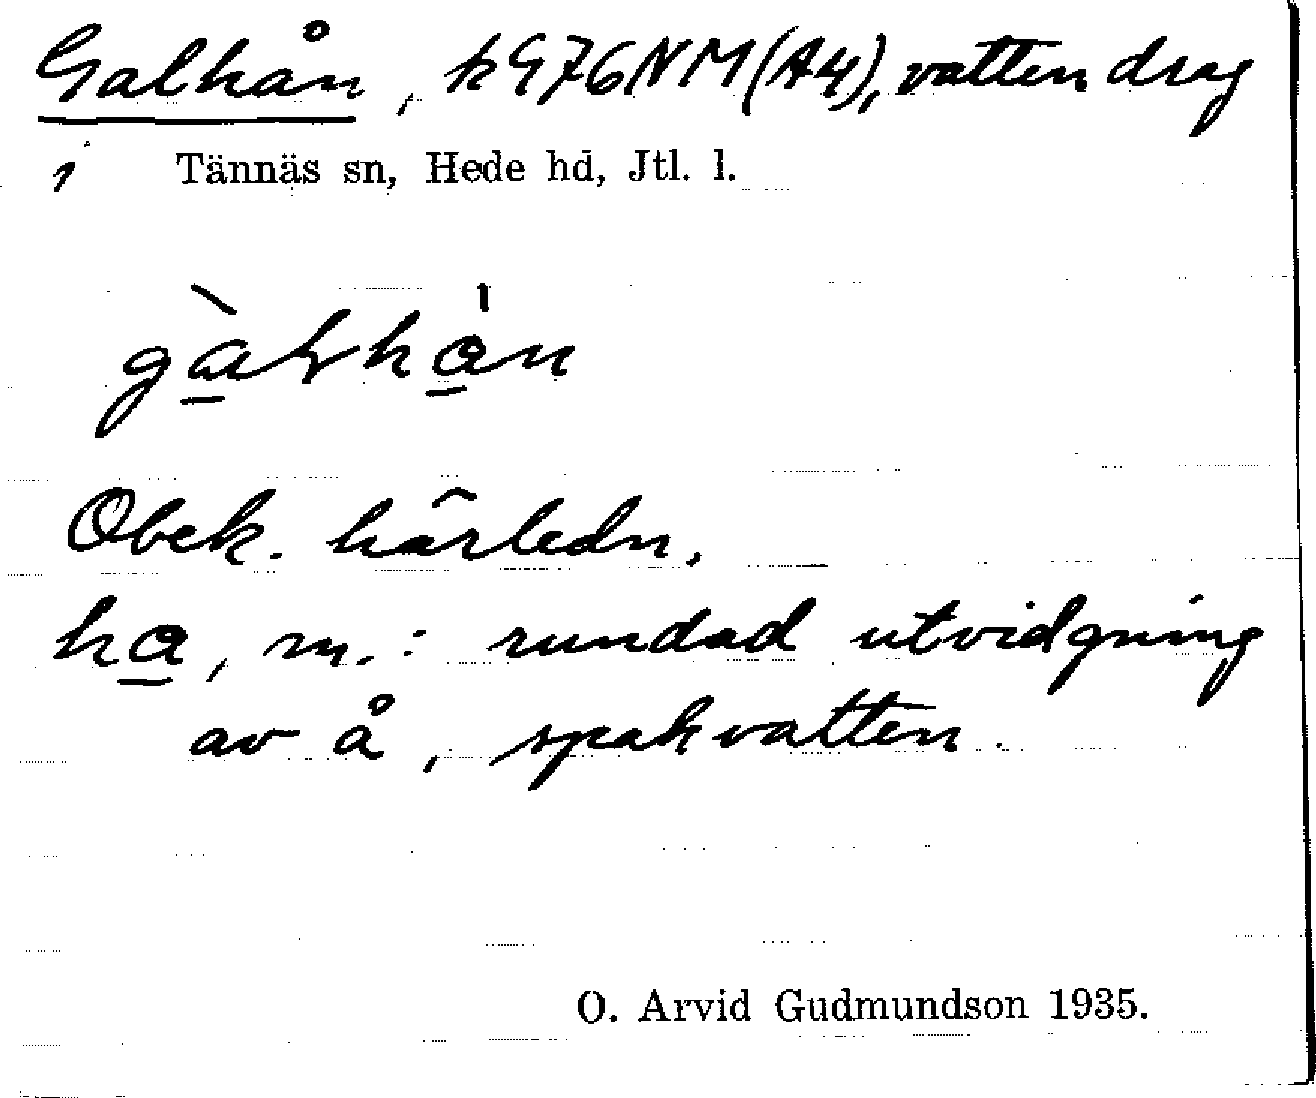 Galhån, kG76NM(A4), vattendrag
i Tännäs sn, Hede hd, Jtl. l.
gàłhàn
Obek. härledn.
ha, m.: rundad utvidgning
av å, spakvatten.
O. Arvid Gudmundson 1935.